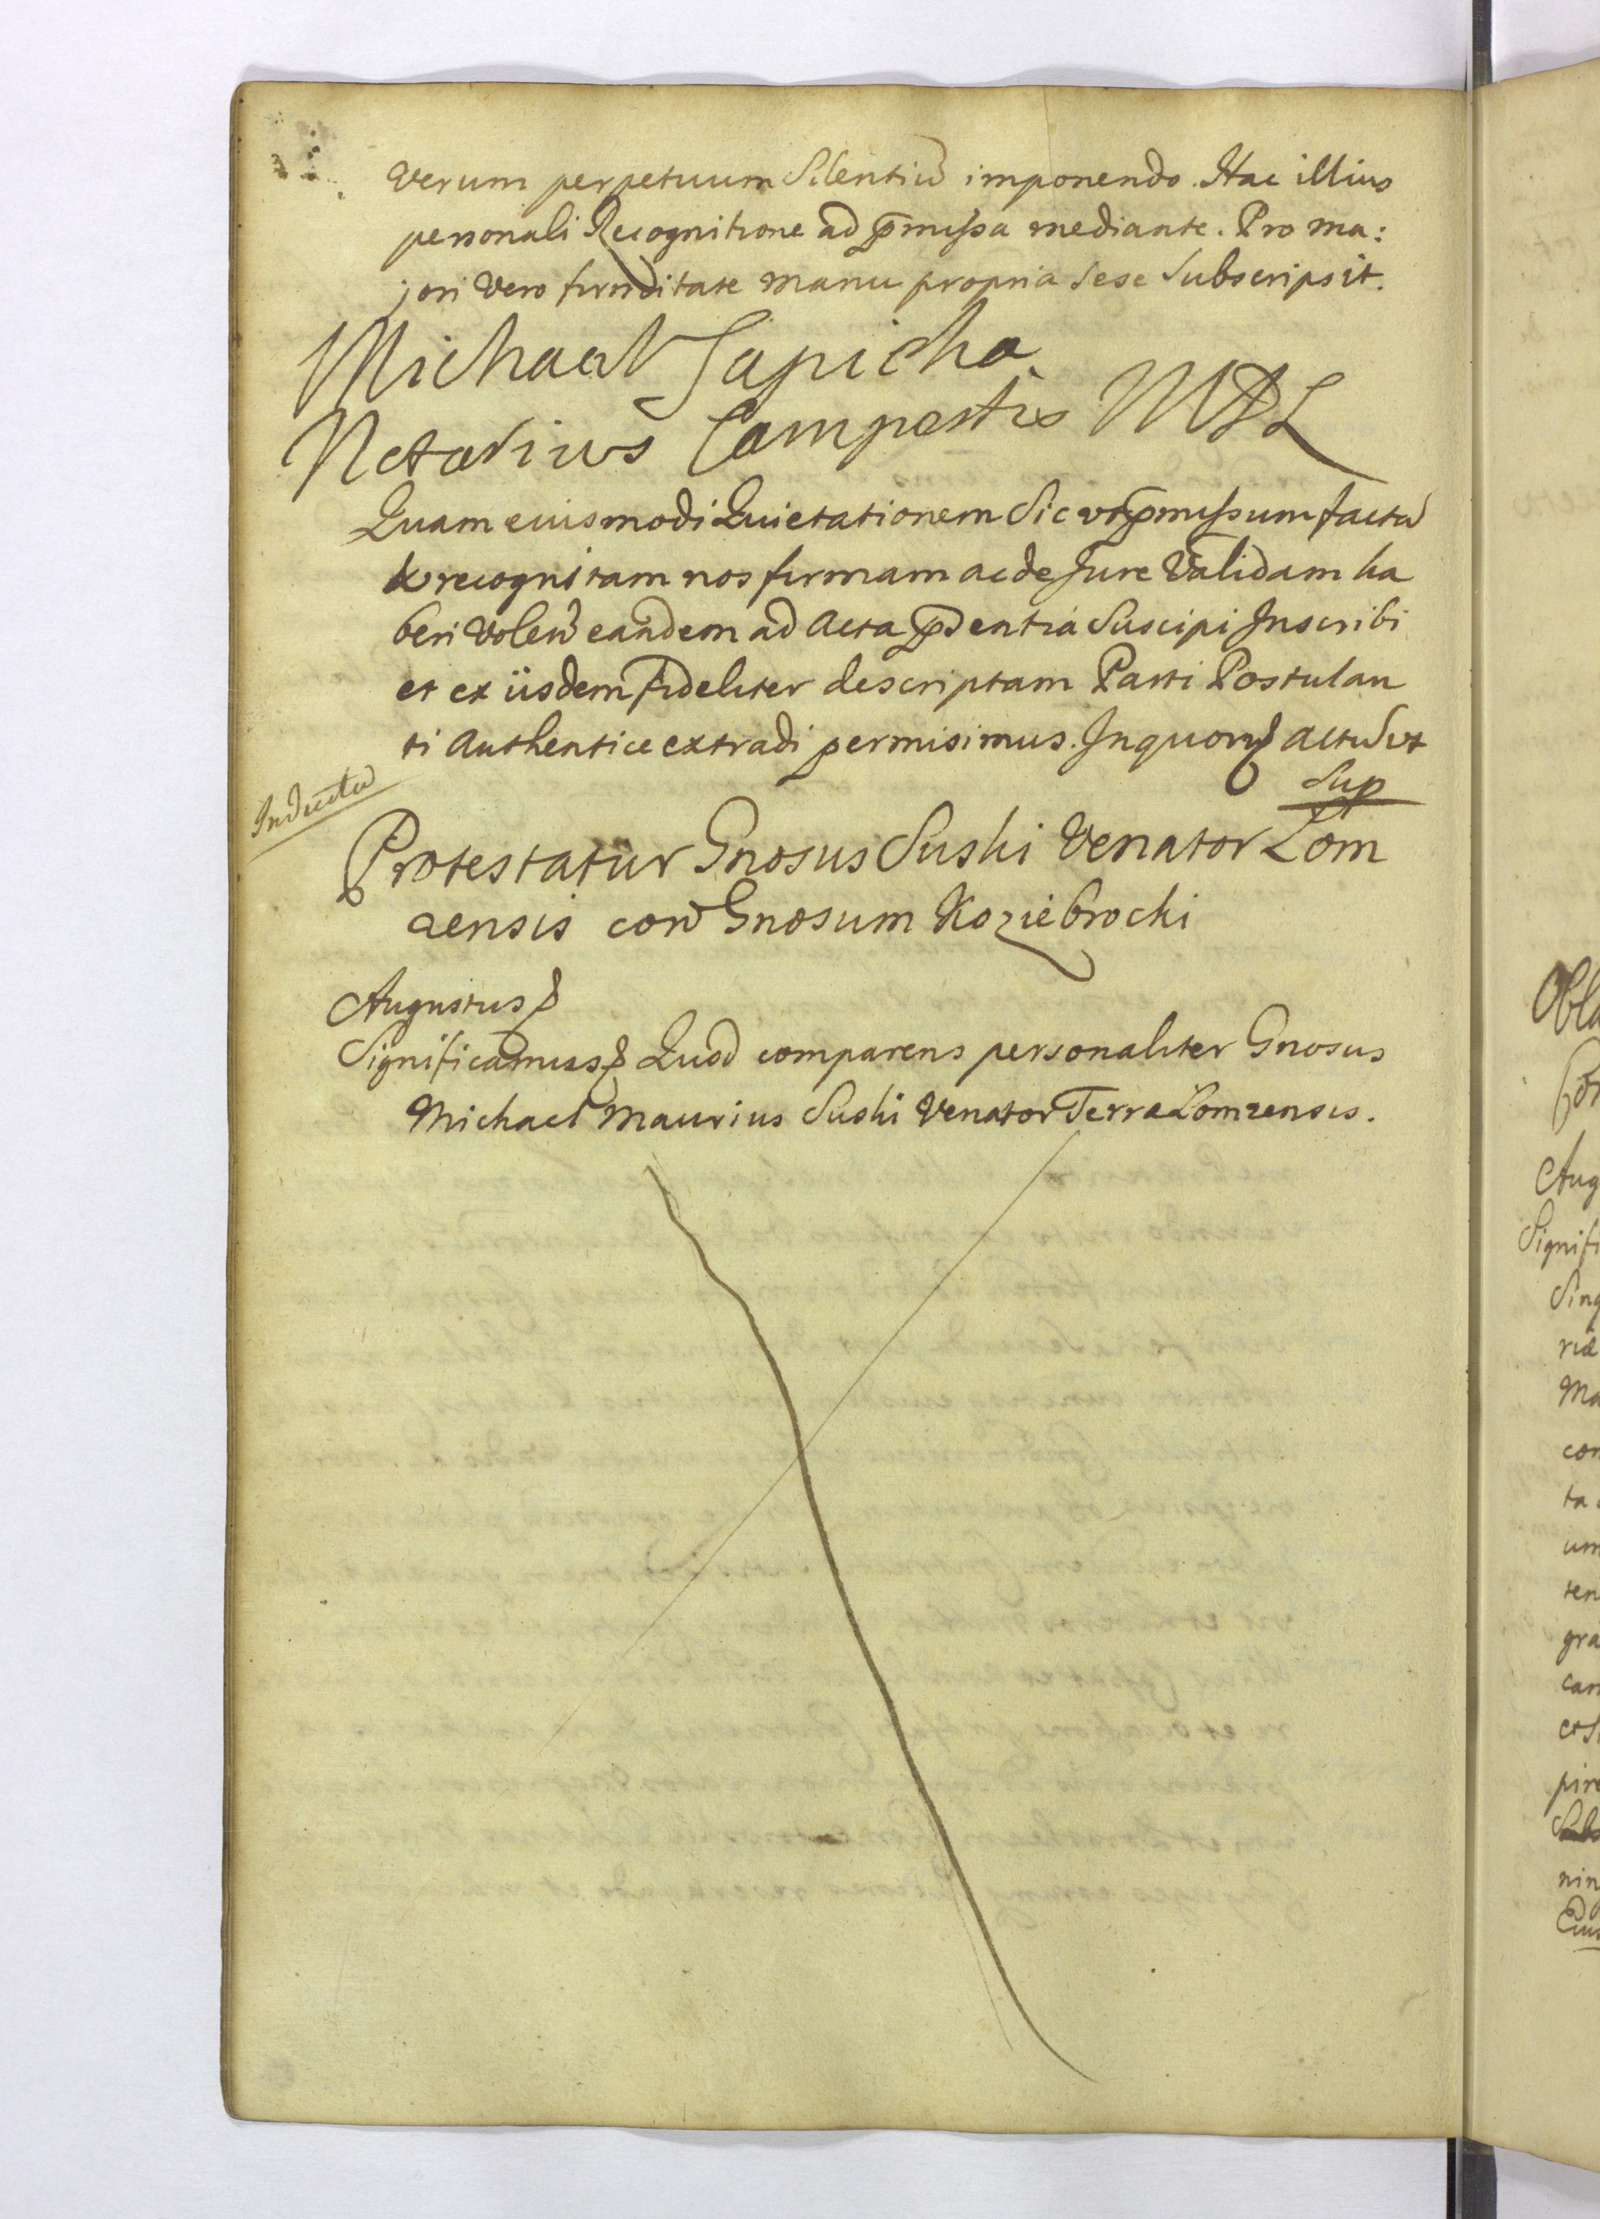 verum perpetuum Silentiū imponendo. Hac illius
personali Recognitione ad p̄missa mediante. Pro ma:
jori vero firmitate manu propria sese subscripsit.
Michael Sapieha
Notarius Campestris MDL
Quam eiusmodi Quietationem Sic ut p̄missum factā
& recognitam nos firmam ac de Jure Validam ha
beri Volen̄ eandem ad Acta p̄sentia Suscipi Inscribi
et ex iisdem fideliter descriptam Parti Postulan
ti Authentice extradi permisimus. In quorū Actū ut
Sup
Inductū
Protestatur Gnosus Suski Venator Lom
zensis con̄ Gnosum Koziebrocki
Augustus
Significamus Quod comparens personaliter Gnosus
Michael Maurius Suski Venator Terræ Lomzensis.
Obla
Con
Aug
Signifi
Sing
riæ
Ma
con
ta
um
ten
gra
cam
et S
pire
nin
Eius